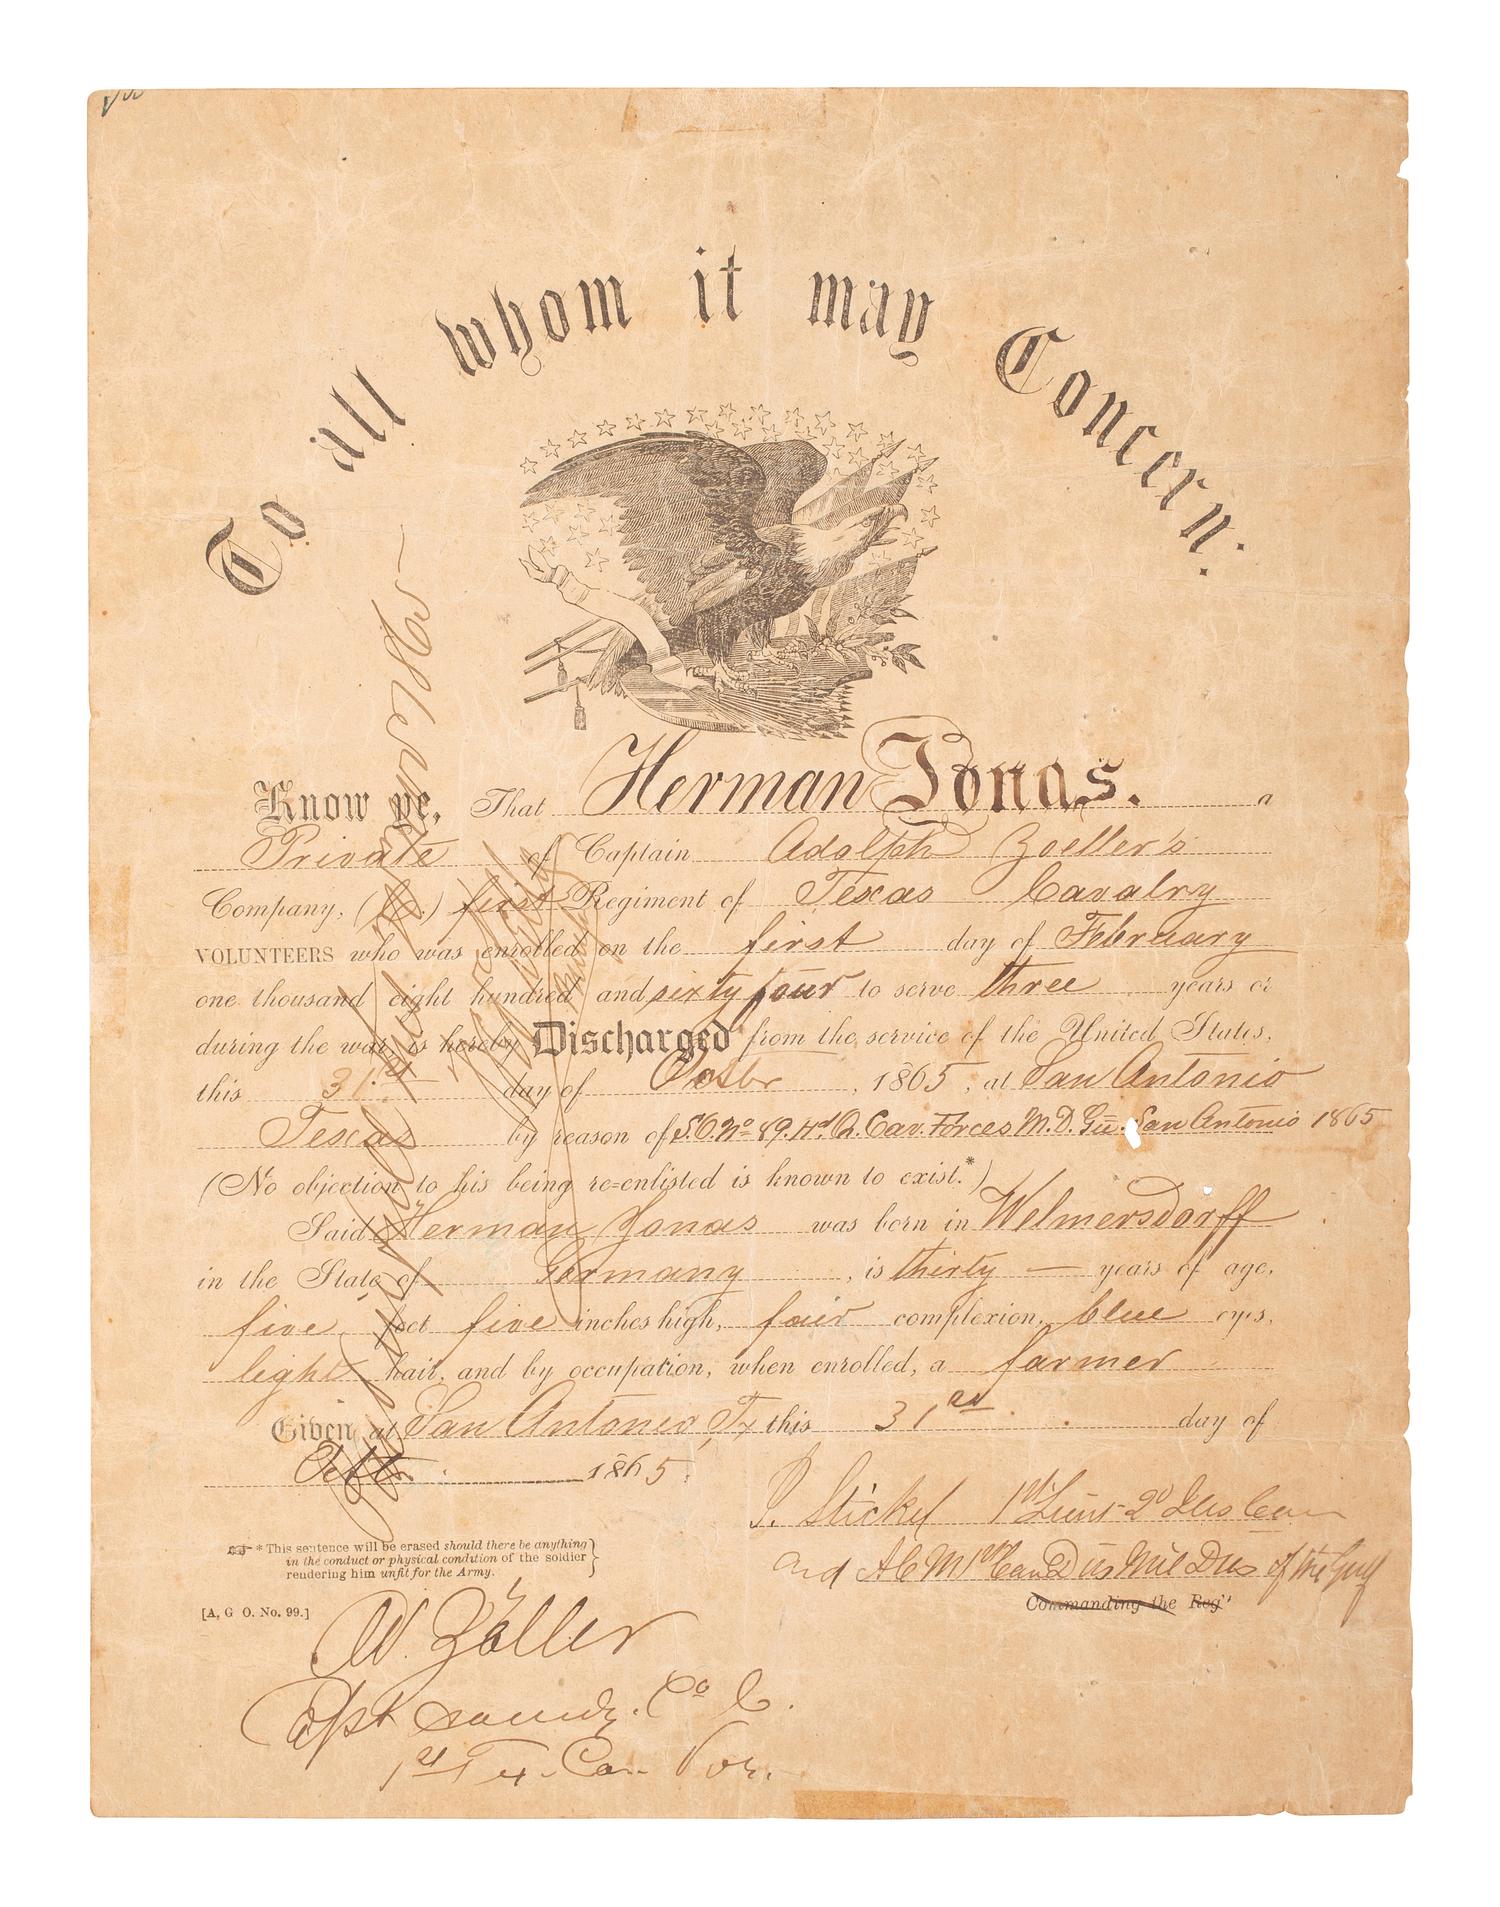 To all whom it may Concern:
Know ye, That Herman Jonas. a
Private of Captain Adolph Zoeller's
Company, (C.) first Regiment of Texas Cavalry
VOLUNTEERS who was enrolled on the first day of February
one thousand eight hundred and sixty four to serve three years or
during the war, is hereby Discharged from the service of the United States,
this 31st day of Octbr, 1865, at San Antonio
Texas by reason of S.O. No 89. Hd Q. Cav. Forces M.D. San Antonio 1865
(No objection to his being re-enlisted is known to exist.*)
Said Herman Jonas was born in Welmersdorff
in the State of Germany, is thirty — years of age,
five feet five inches high, fair complexion, blue eyes,
light hair, and by occupation, when enrolled, a farmer
Given at San Antonio, Tx this 31st day of
Octbr. 1865.
Stickel 1st Lieut
Commanding the Reg't
* This sentence will be erased should there be anything
in the conduct or physical condition of the soldier
rendering him unfit for the Army.
[A. G. O. No. 99.]
Zöller
Capt Co C.
1st Tex. Cav. Vol.